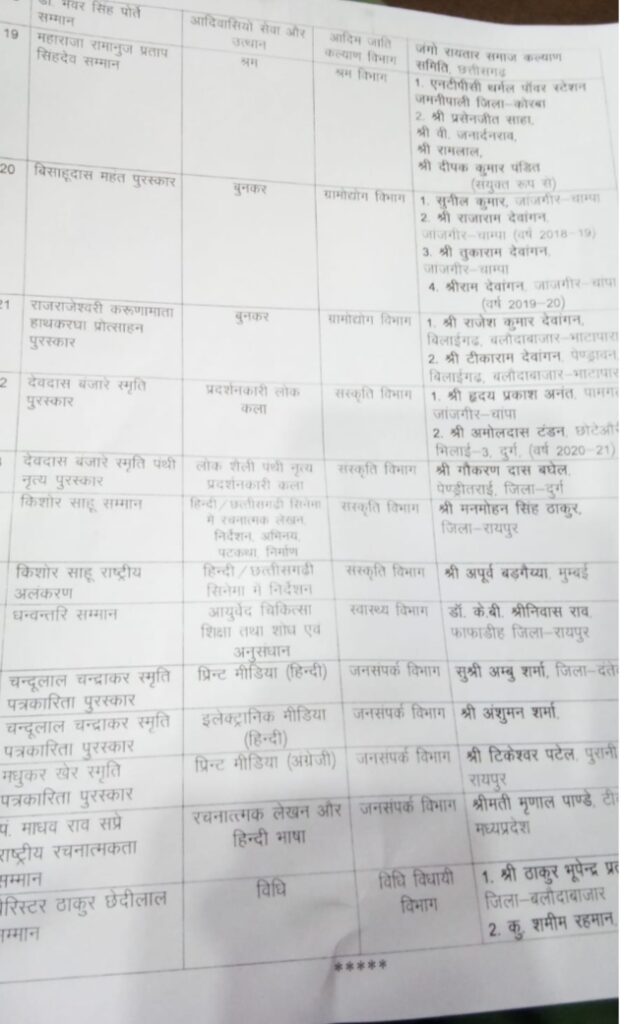 डॉ. भंवर सिंह पोर्ते
सम्मान
आदिवासियों सेवा और
उत्थान
आदिम जाति
कल्याण विभाग
जंगो रायतार समाज कल्याण
समिति, छत्तीसगढ़
19
महाराजा रामानुज प्रताप
सिंहदेव सम्मान
श्रम
श्रम विभाग
1. एनटीपीसी थर्मल पॉवर स्टेशन
जमनीपाली जिला-कोरबा
2. श्री प्रसेनजीत साहा,
श्री वी. जनार्दनराव,
श्री रामलाल,
श्री दीपक कुमार पंडित
(संयुक्त रूप से)
20
बिसाहूदास महंत पुरस्कार
बुनकर
ग्रामोद्योग विभाग
1. सुनील कुमार, जांजगीर-चाम्पा
2. श्री राजाराम देवांगन,
जांजगीर-चाम्पा (वर्ष 2018-19)
3. श्री तुकाराम देवांगन,
जांजगीर-चाम्पा
4. श्रीराम देवांगन, जांजगीर-चांपा
(वर्ष 2019-20)
21
राजराजेश्वरी करूणामाता
हाथकरघा प्रोत्साहन
पुरस्कार
बुनकर
ग्रामोद्योग विभाग
1. श्री राजेश कुमार देवांगन,
बिलाईगढ़, बलौदाबाजार-भाटापारा
2. श्री टीकाराम देवांगन, पेण्ड्रावन,
बिलाईगढ़, बलौदाबाजार-भाटापार
2
देवदास बंजारे स्मृति
पुरस्कार
प्रदर्शनकारी लोक
कला
संस्कृति विभाग
1. श्री हृदय प्रकाश अनंत, पामगढ़
जांजगीर-चांपा
2. श्री अमोलदास टंडन, छोटेऔरी
भिलाई-3, दुर्ग, (वर्ष 2020-21)
देवदास बंजारे स्मृति पंथी
नृत्य पुरस्कार
लोक शैली पंथी नृत्य
प्रदर्शनकारी कला
संस्कृति विभाग
श्री गौकरण दास बघेल,
पेण्ड्रीतराई, जिला-दुर्ग
किशोर साहू सम्मान
हिन्दी/छत्तीसगढ़ी सिनेमा
में रचनात्मक लेखन,
निर्देशन, अभिनय,
पटकथा, निर्माण
संस्कृति विभाग
श्री मनमोहन सिंह ठाकुर,
जिला-रायपुर
किशोर साहू राष्ट्रीय
अलंकरण
हिन्दी/छत्तीसगढ़ी
सिनेमा में निर्देशन
संस्कृति विभाग
श्री अपूर्व बड़गैय्या, मुम्बई
धन्वन्तरि सम्मान
आयुर्वेद चिकित्सा
शिक्षा तथा शोध एवं
अनुसंधान
स्वास्थ्य विभाग
डॉ. के.बी. श्रीनिवास राव,
फाफाडीह जिला-रायपुर
चन्दूलाल चन्द्राकर स्मृति
पत्रकारिता पुरस्कार
प्रिन्ट मीडिया (हिन्दी)
जनसंपर्क विभाग
सुश्री अम्बु शर्मा, जिला-दंते
चन्दूलाल चन्द्राकर स्मृति
पत्रकारिता पुरस्कार
इलेक्ट्रानिक मीडिया
(हिन्दी)
जनसंपर्क विभाग
श्री अंशुमन शर्मा,
मधुकर खेर स्मृति
पत्रकारिता पुरस्कार
प्रिन्ट मीडिया (अंग्रेजी)
जनसंपर्क विभाग
श्री टिकेश्वर पटेल, पुरानी
रायपुर
पं. माधव राव सप्रे
राष्ट्रीय रचनात्मकता
सम्मान
रचनात्मक लेखन और
हिन्दी भाषा
जनसंपर्क विभाग
श्रीमती मृणाल पाण्डे, टी
मध्यप्रदेश
बैरिस्टर ठाकुर छेदीलाल
सम्मान
विधि
विधि विधायी
विभाग
1. श्री ठाकुर भूपेन्द्र प्र
जिला-बलौदाबाजार
2. कु. शमीम रहमान,
*****